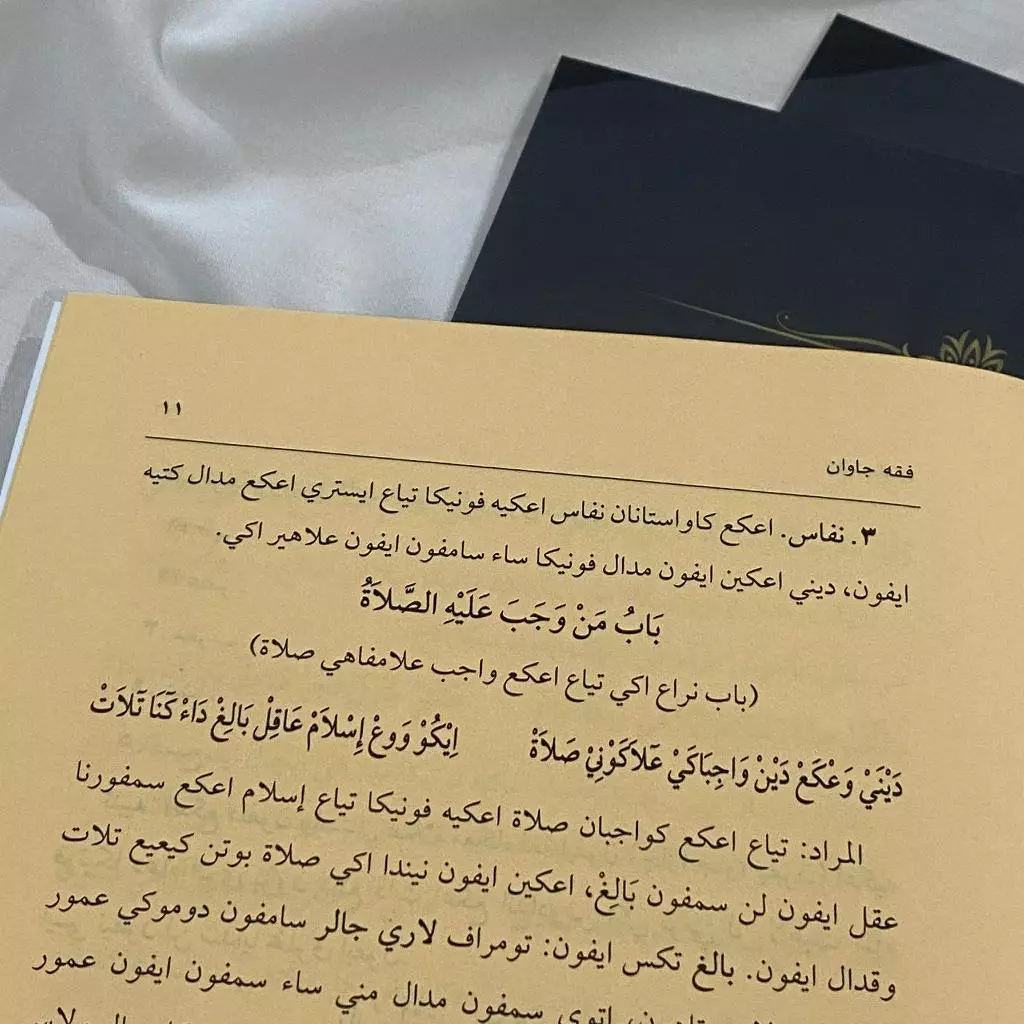 ١١
فقه جاوان
٣. نفاس. اعكع كاواستانان نفاس اعكيه فونيكا تياع ايستري اعكع مدال كتيه
ايفون، ديني اعكين ايفون مدال فونيكا ساء سامفون ايفون علاهير اكي.
بَابُ مَنْ وَجَبَ عَلَيْهِ الصَّلَاةُ
(باب نراع اكي تياع اعكع واجب علامفاهي صلاة)
دَيْنَيْ وَعْكَعْ دَيْنْ وَاجِبَاكَيْ عَلَاكَوْنِيْ صَلَاةْ اِيْكُوْ وَوعْ إِسْلَامْ عَاقِلْ بَالِغْ دَاءْ كَنَا تَلَاتْ
المراد: تياع اعكع كواجبان صلاة اعكيه فونيكا تياع إسلام اعكع سمفورنا
عقل ايفون لن سمفون بَالِغْ، اعكين ايفون نيندا اكي صلاة بوتن كيعيع تلات
وقدال ايفون. بالغ تكس ايفون: تومراف لاري جالر سامفون دوموكي عمور
اتوي سمفون مدال مني ساء سمفون ايفون عمور